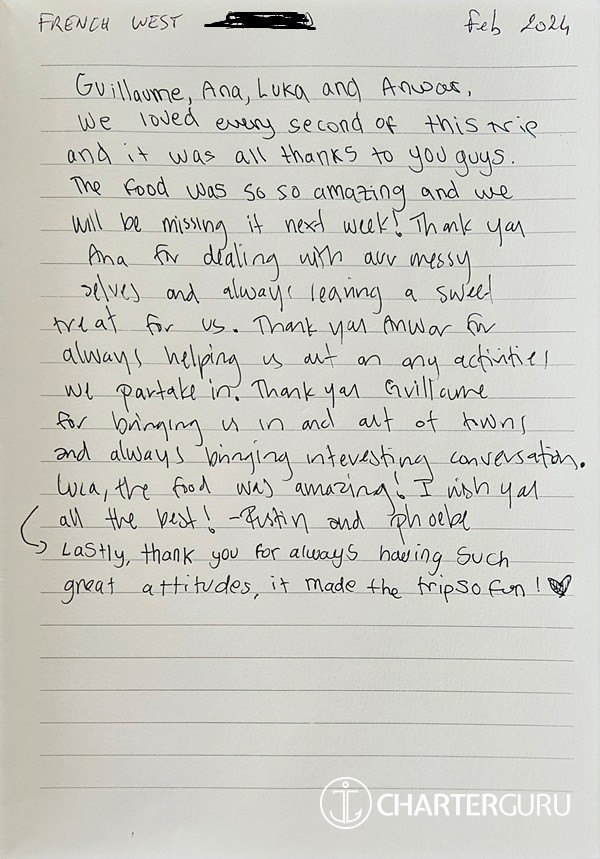 FRENCH WEST
Feb 2024
Guillaume, Ana, Luka and Anwar,
We loved every second of this trip
and it was all thanks to you guys.
The food was so so amazing and we
will be missing it next week! Thank you
Ana for dealing with our messy
selves and always leaving a sweet
treat for us. Thank you Anwar for
always helping us out on any activities
we partake in. Thank you Guillaume
for bringing us in and out of towns
and always bringing interesting conversation.
Luca, the food was amazing! I wish you
all the best! - Justin and Phoebe
Lastly, thank you for always having such
great attitudes, it made the trip so fun!
CHARTERGURU